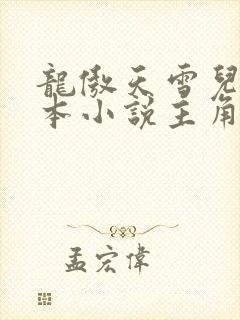 龍傲天雪兒
本小說主角
孟宏偉